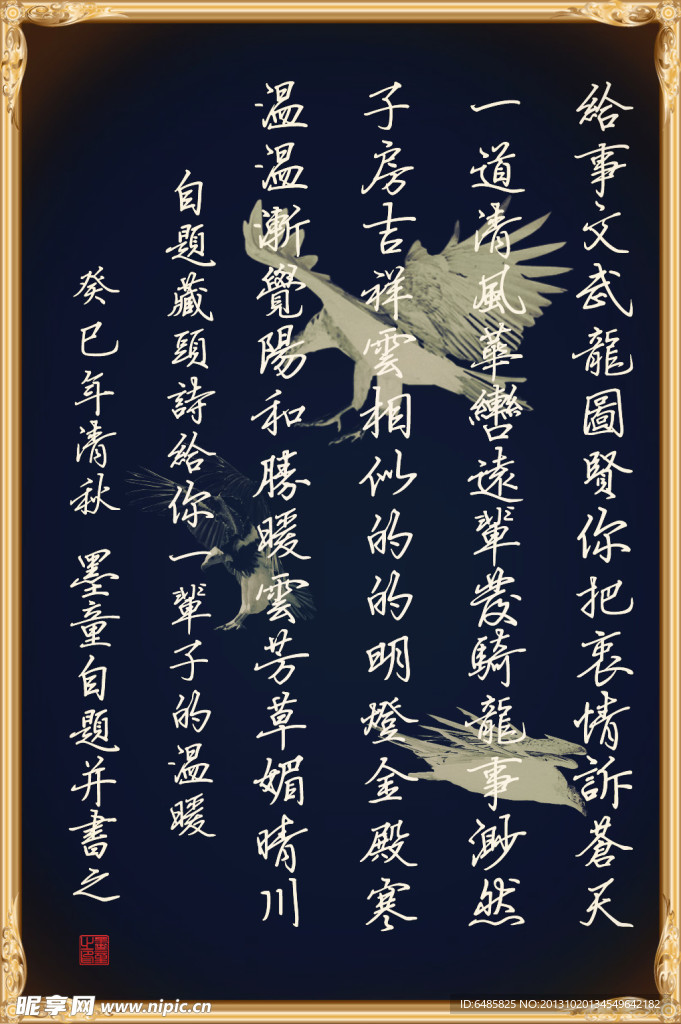 給事文武龍圖賢你把衷情訴蒼天
一道清風華轡遠輩發騎龍事渺然
子房吉祥雲相似的的明燈金殿寒
溫溫漸覺陽和勝暖雲芳草媚晴川
自題藏頭詩給你一輩子的溫暖
癸巳年清秋 墨童自題并書之
昵享网 www.nipic.cn
ID:6485825 NO:20131020134549642182